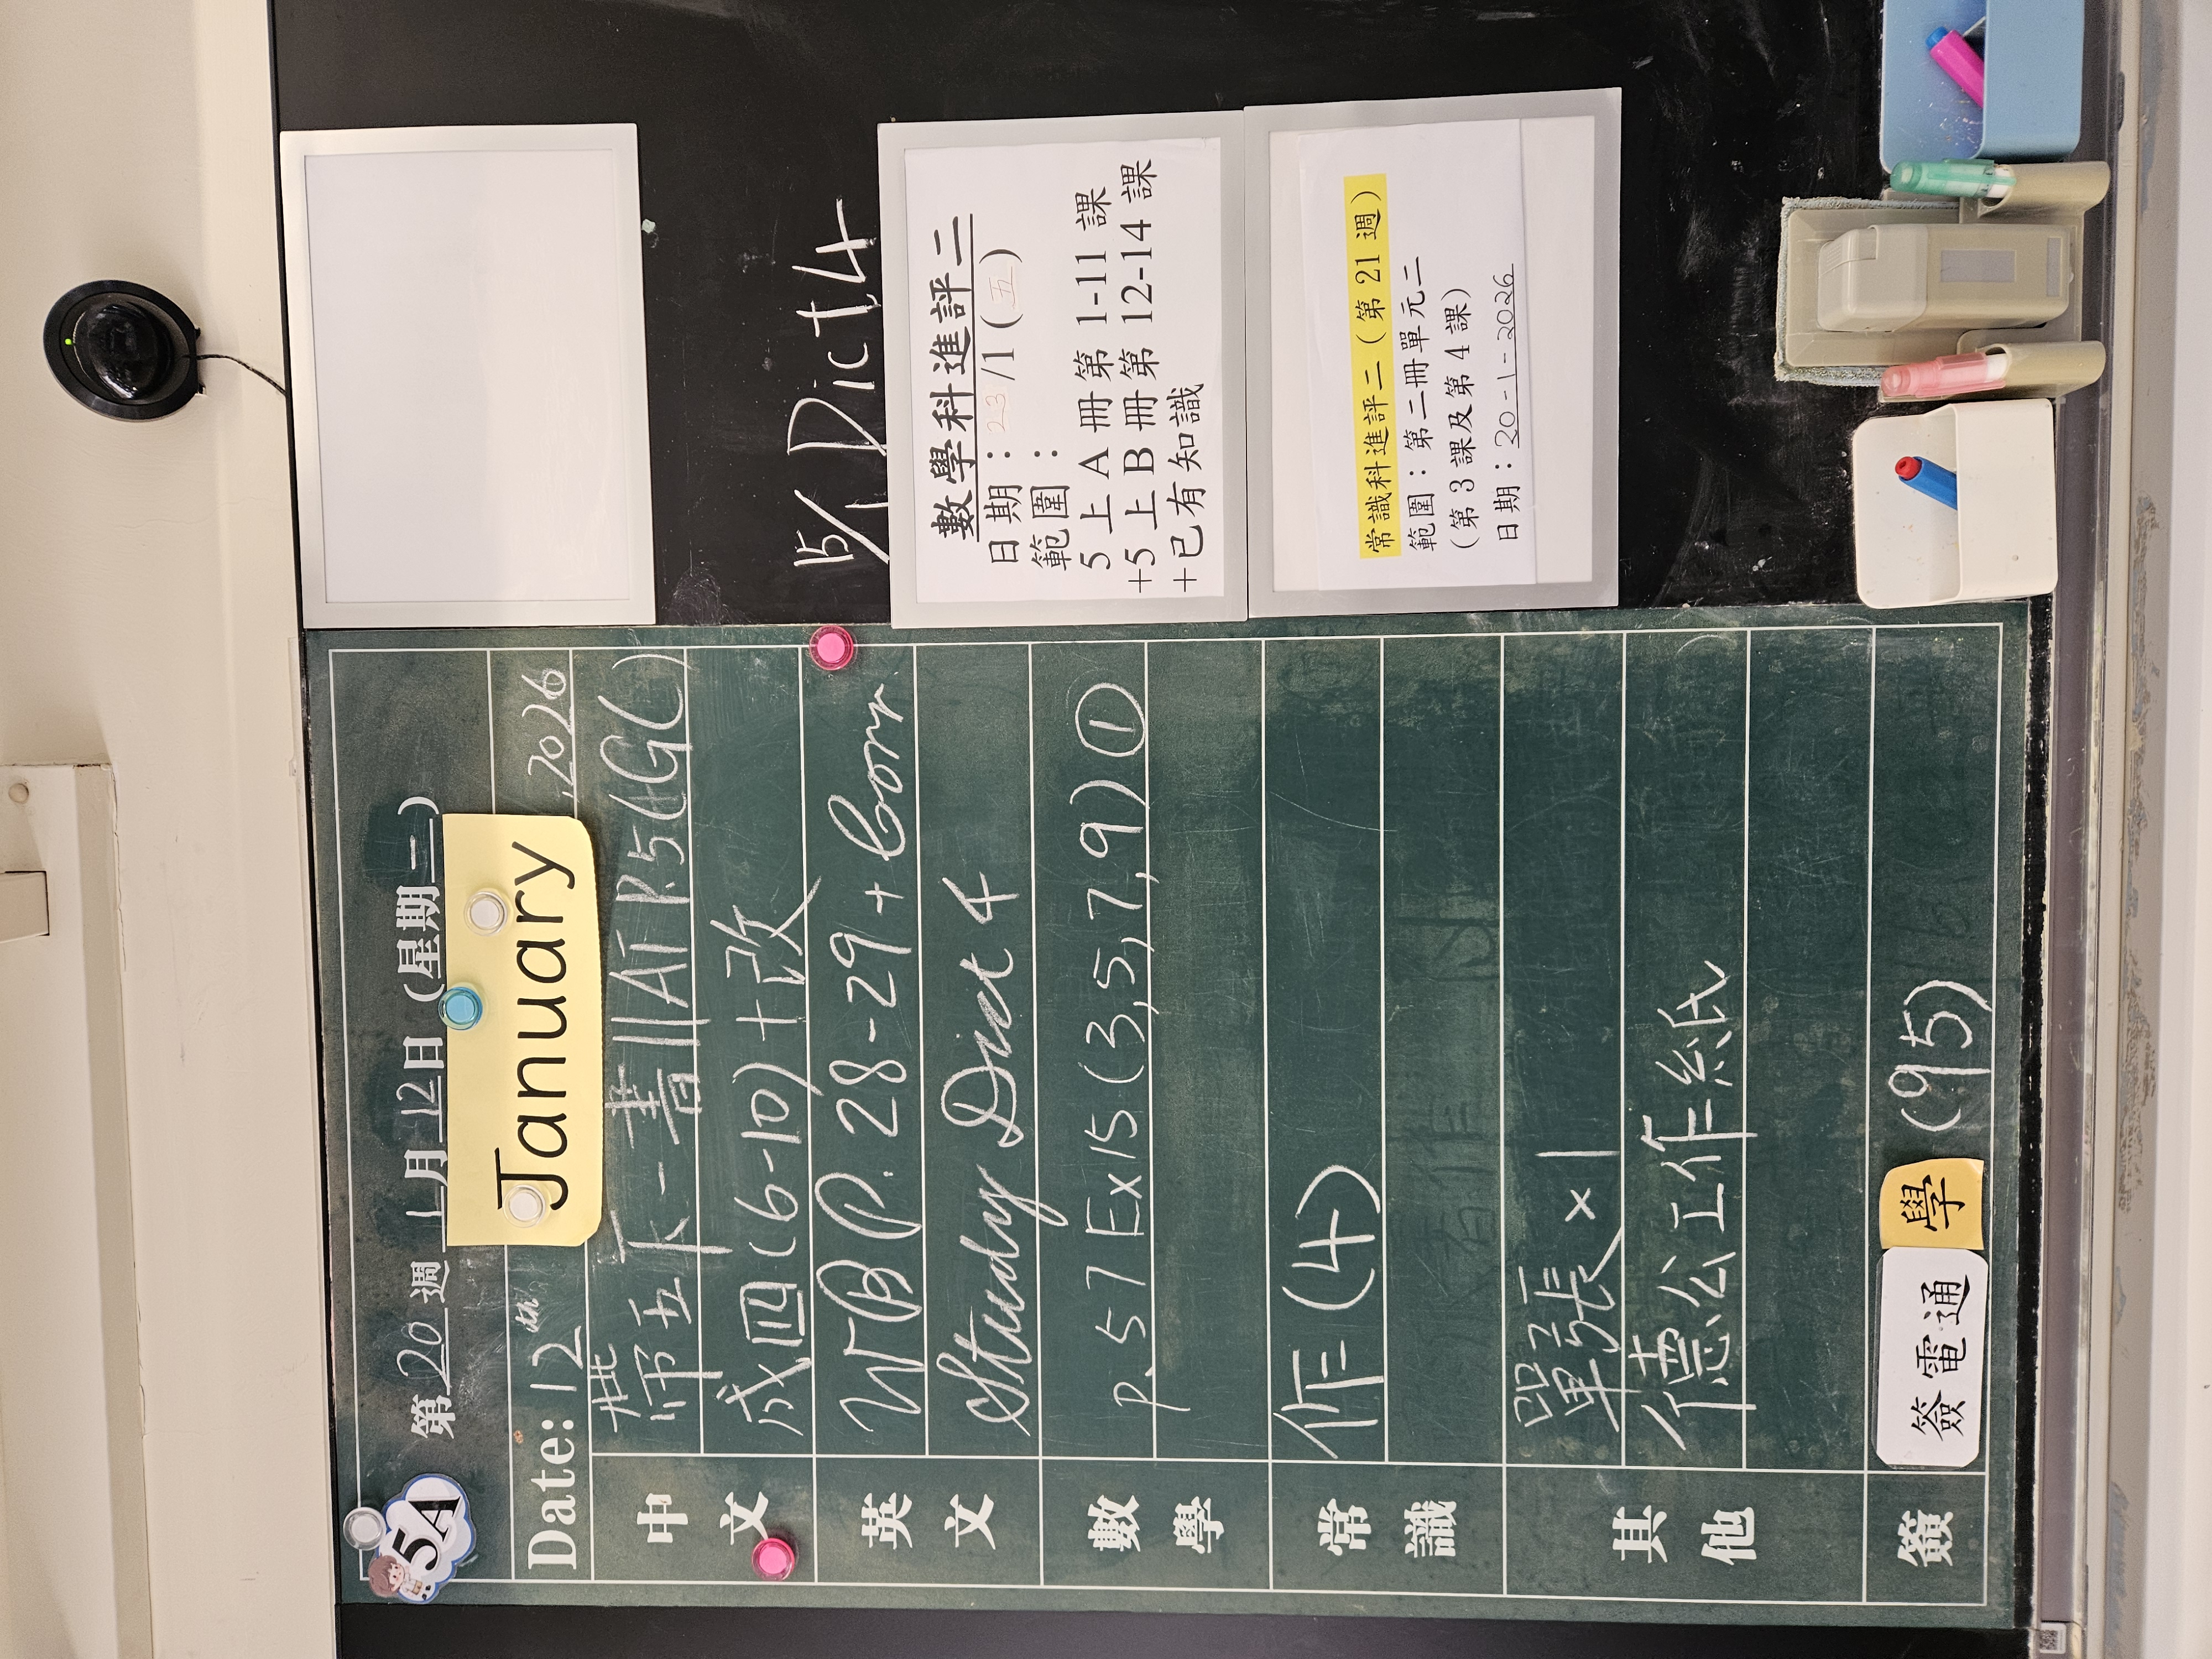 5A
第 20 週 1月 12日 (星期二)
January
Date: 12th ,2026
中文
五下一書||AI P.5 (GC)
成四 (6-10) + 改
英文
WB P. 28-29 + Corr
Study Dict 4
數學
p.57 Ex15 (3,5,7,9) ①
常識
作 (4)
其他
單張 × 1
德公工作紙
簽
簽電通 學 (95)
15/1 Dict 4
數學科進評二
日期：23/1 (五)
範圍：
5 上 A 冊第 1-11 課
+5 上 B 冊第 12-14 課
+已有知識
常識科進評二（第 21 週）
範圍：第二冊單元二
（第 3 課及第 4 課）
日期：20-1-2026